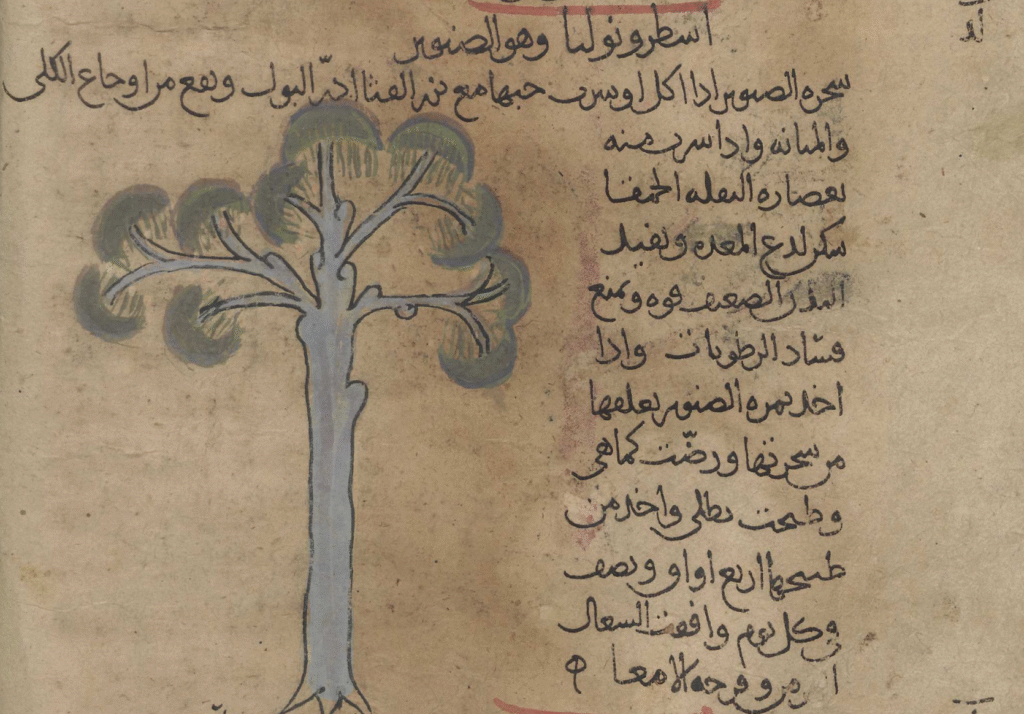 اسطرونوليا وهو الصنوبر
شجره الصنوبر اذا اكل او شرب حبها مع بزر القثا ادرّ البول ونفع من اوجاع الكلى
والمثانه واذا شرب منه
بعصاره البقله الحمقا
سكن لدع المعده ويفيد
البدن الضعيف قوه ويمنع
فساد الرطوبات واذا
اخذ ثمره الصنوبر بغلفها
من شجرتها ورضّت كما هي
وطبخت بطلى واخذ من
طبيخها اربع اواق ونصف
فى كل يوم وافقت السعال
المزمن وقرحه الامعا